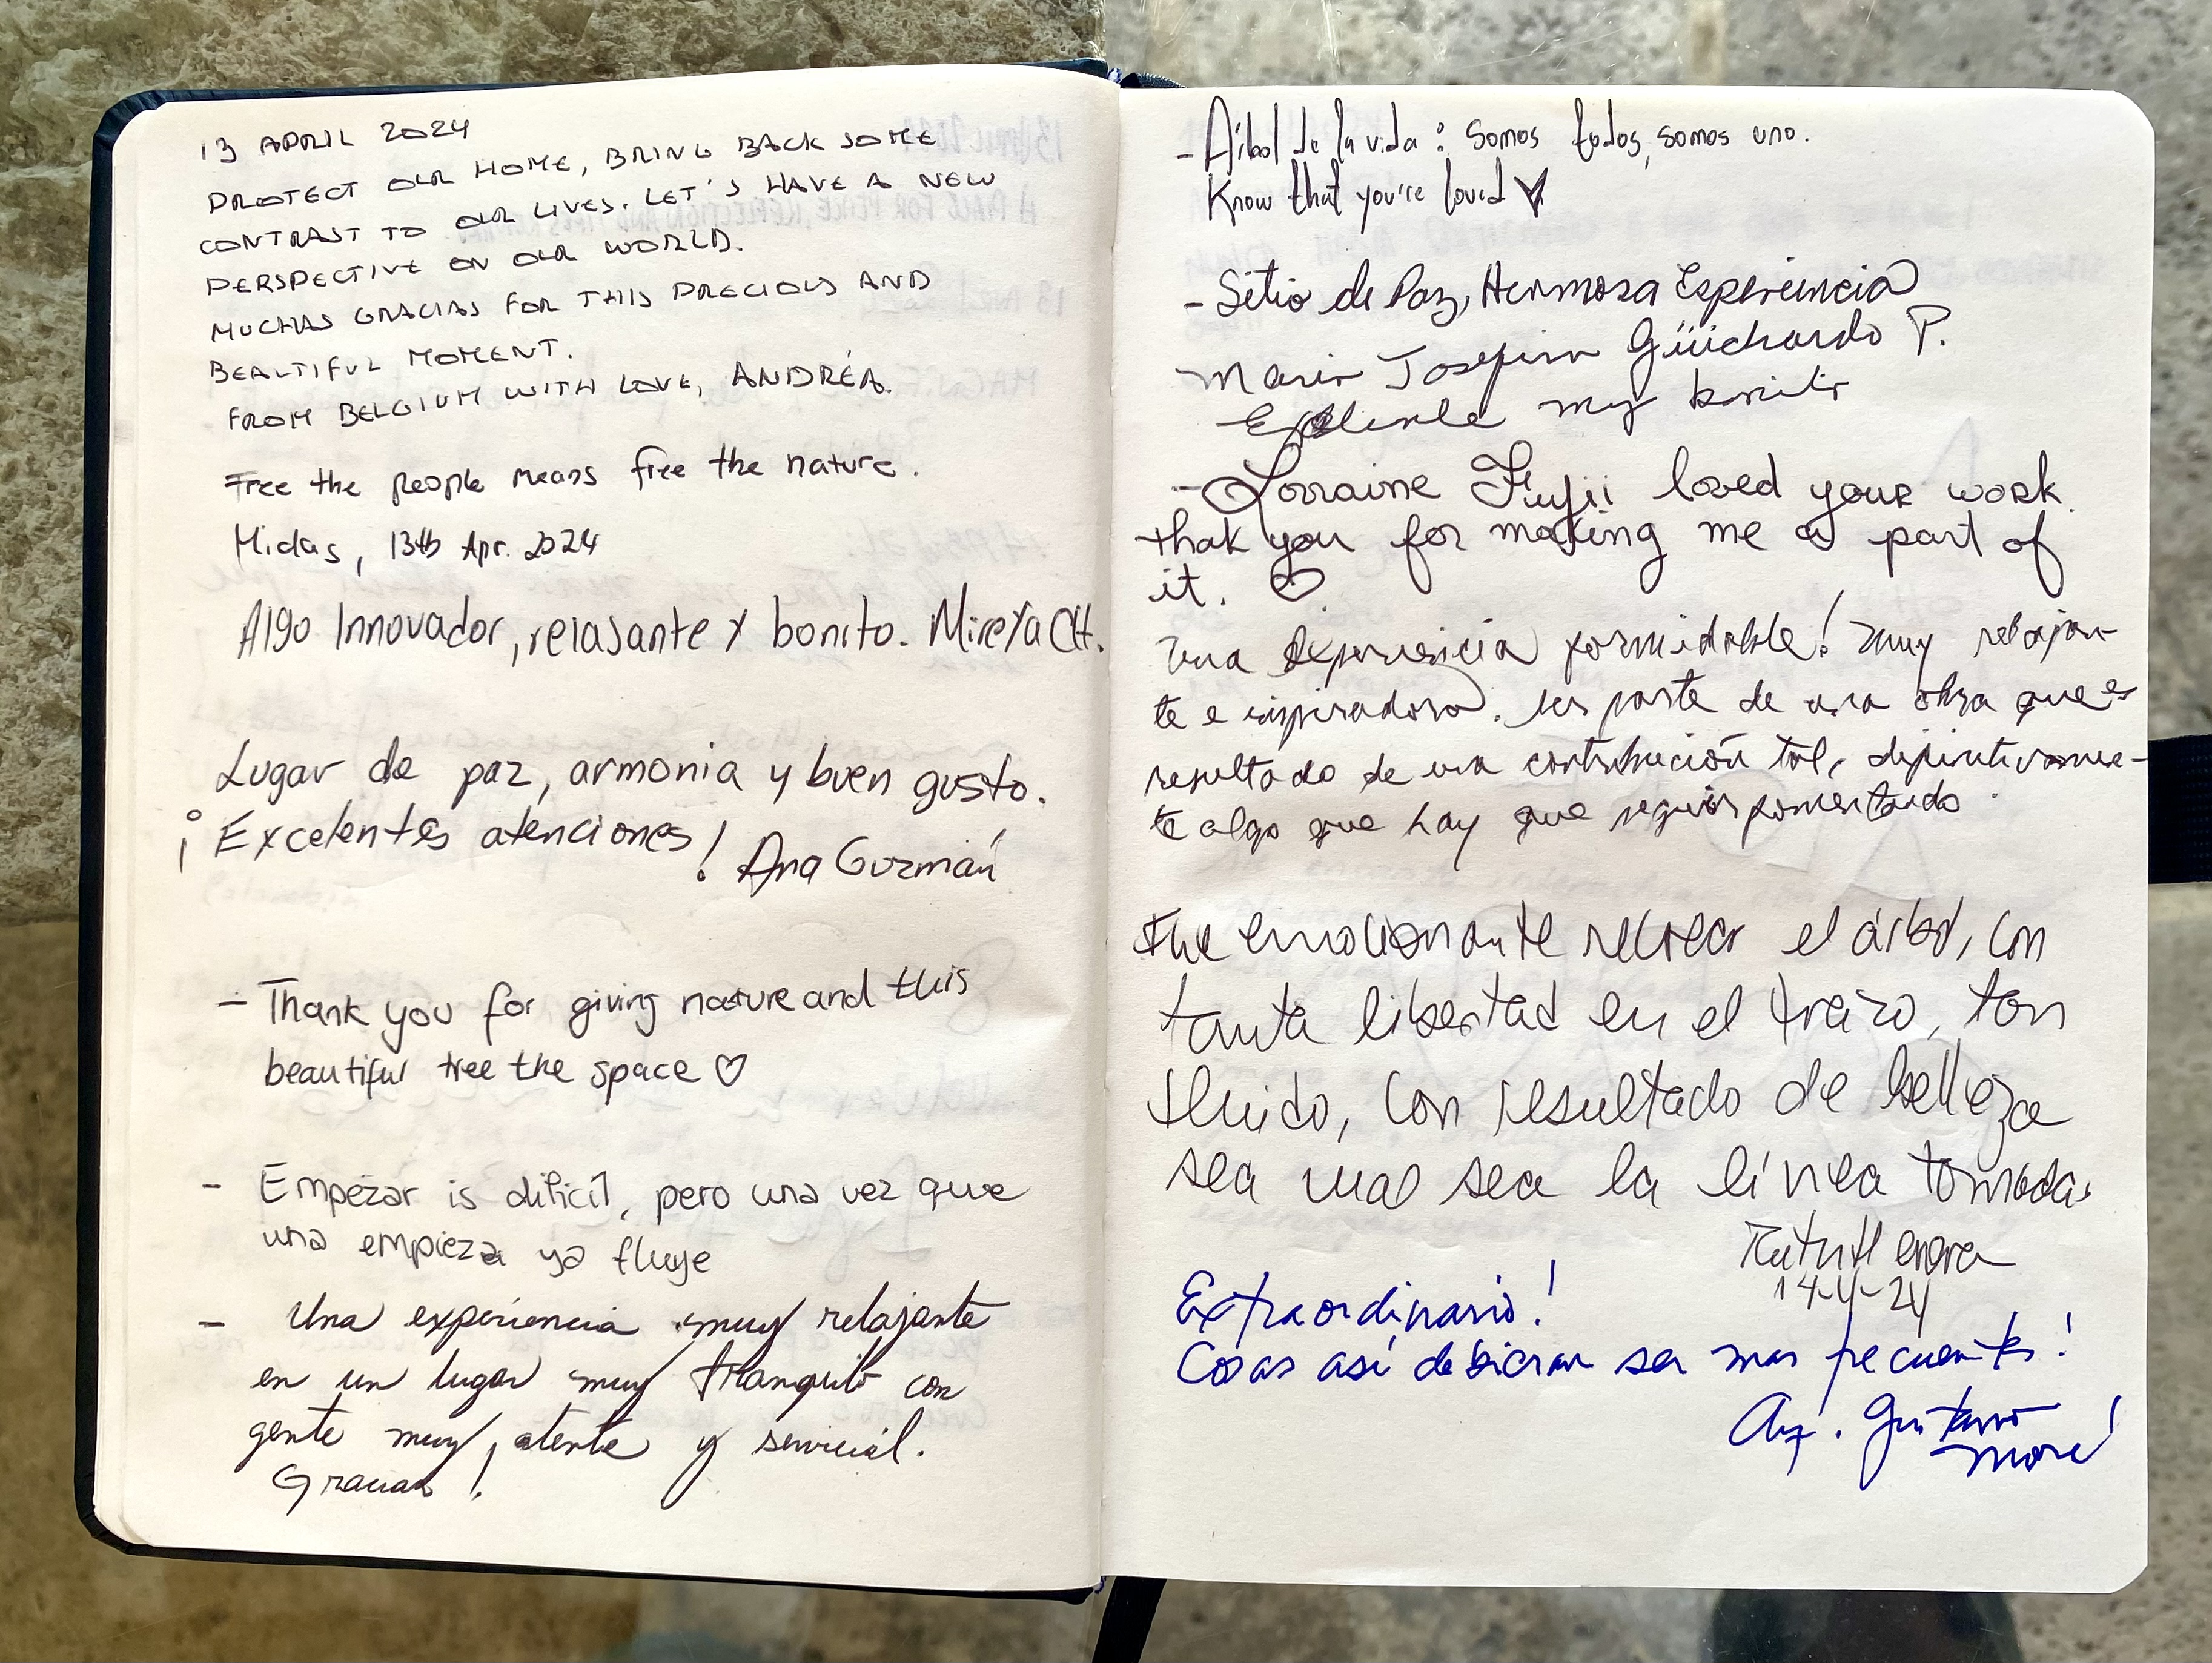 13 APRIL 2024
PROTECT OUR HOME, BRING BACK SOME
CONTRAST TO OUR LIVES. LET'S HAVE A NEW
PERSPECTIVE ON OUR WORLD.
MUCHAS GRACIAS FOR THIS PRECIOUS AND
BEAUTIFUL MOMENT.
FROM BELGIUM WITH LOVE, ANDRÉA.
Free the people means free the nature.
Midas, 13th Apr. 2024
Algo Innovador, relasante y bonito. Mireya CH.
Lugar de paz, armonia y buen gusto.
¡Excelentes atenciones! Ana Guzmán
- Thank you for giving nature and this
beautiful tree the space ♡
- Empezar is dificil, pero una vez que
una empieza ya fluye
- Una experiencia muy relajante
en un lugar muy tranquilo con
gente muy atenta y servicial.
Gracias!
- Árbol de la vida: somos todos, somos uno.
Know that you're loved ♥
- Sitio de Paz, Hermosa Esperiencia
Maria Josefina Güichardo P.
Exelente muy bonito
- Lorraine Fujii loved your work.
thak you for making me a part of
it. ♡
Una experiencia formidable! Muy relajan-
te e inspiradora. Ser parte de una obra que es
resultado de una contribución tal, definitivamen-
te algo que hay que seguir fomentando.
Fue emocionante recrear el árbol, con
tanta libertad en el trazo, tan
fluido, con resultado de belleza
sea cual sea la línea tomada.
14-4-24
Extraordinario!
Cosas así debieran ser mas frecuentes!
Arq. Gustavo
Moré